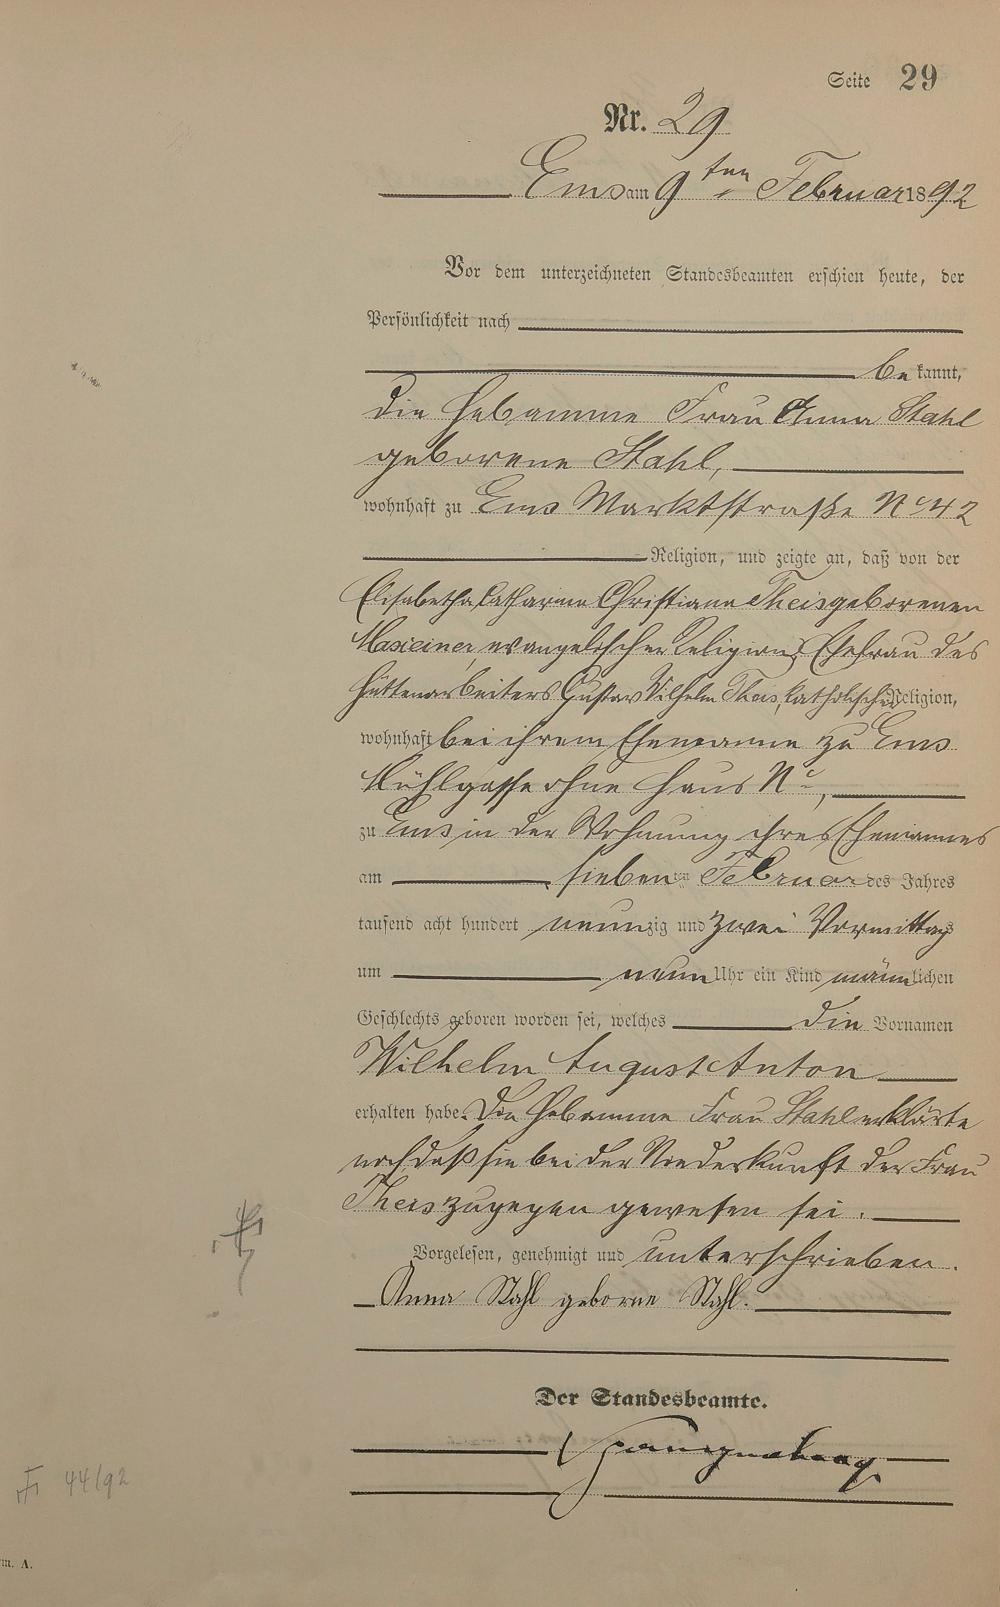 Seite 29
Nr. 29
Ems am 9ten Februar 1892
Vor dem unterzeichneten Standesbeamten erschien heute, der
Persönlichkeit nach
bekannt,
die Hebamme Frau Anna Stahl
geborene Stahl,
wohnhaft zu Ems Marktstraße No 42
Religion, und zeigte an, daß von der
Elisabetha Catharina Christiana Theis geborenen
evangelischer Religion, Ehefrau des
Hüttenarbeiters Gustav Wilhelm Theis, katholischer Religion,
wohnhaft bei ihrem Ehemanne zu Ems
Mühlgasse ohne Haus No,
zu Ems in der Wohnung ihres Ehemannes
am sieben ten Februar des Jahres
tausend acht hundert neunzig und zwei Vormittags
um neun Uhr ein Kind männlichen
Geschlechts geboren worden sei, welches die Vornamen
Wilhelm August Anton
erhalten habe. Die Hebamme Frau Stahl erklärte
noch daß sie bei der Niederkunft der Frau
Theis zugegen gewesen sei.
Vorgelesen, genehmigt und unterschrieben.
Anna Stahl geborne Stahl.
Der Standesbeamte.
44/92
m. A.